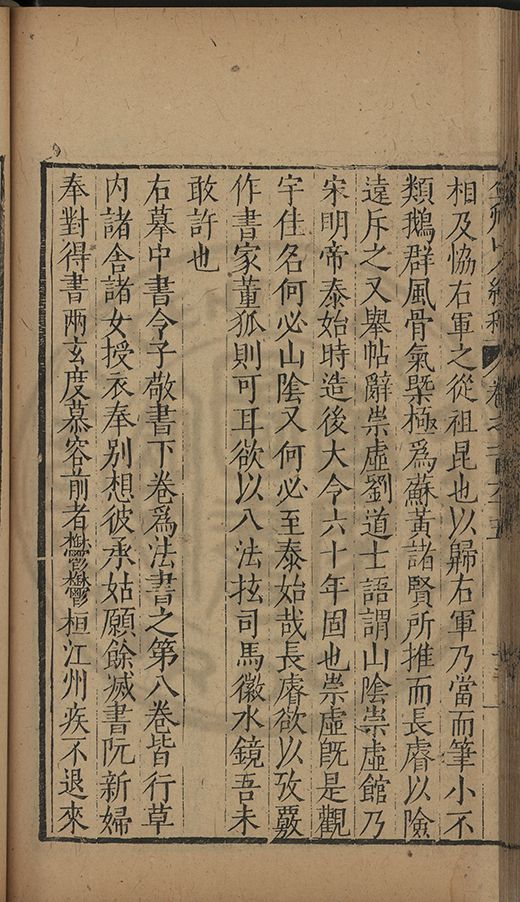 弇州山人續稿 卷之一百六十五
相及恊右軍之從祖昆也以歸右軍乃當而筆小不
類鵝群風骨氣槩極爲蘇黃諸賢所推而長睿以險
遠斥之又舉帖辭崇虛劉道士語謂山陰崇虛館乃
宋明帝泰始時造後大令六十年固也崇虛既是觀
宇佳名何必山陰又何必至泰始哉長睿欲以攷覈
作書家董狐則可耳欲以八法抆司馬徽水鏡吾未
敢許也
右摹中書令子敬書下卷爲法書之第八卷皆行草
内諸舍諸女授衣奉别想彼承姑願餘減書阮新婦
奉對得書兩玄度慕容前者鬱鬱桓江州疾不退來